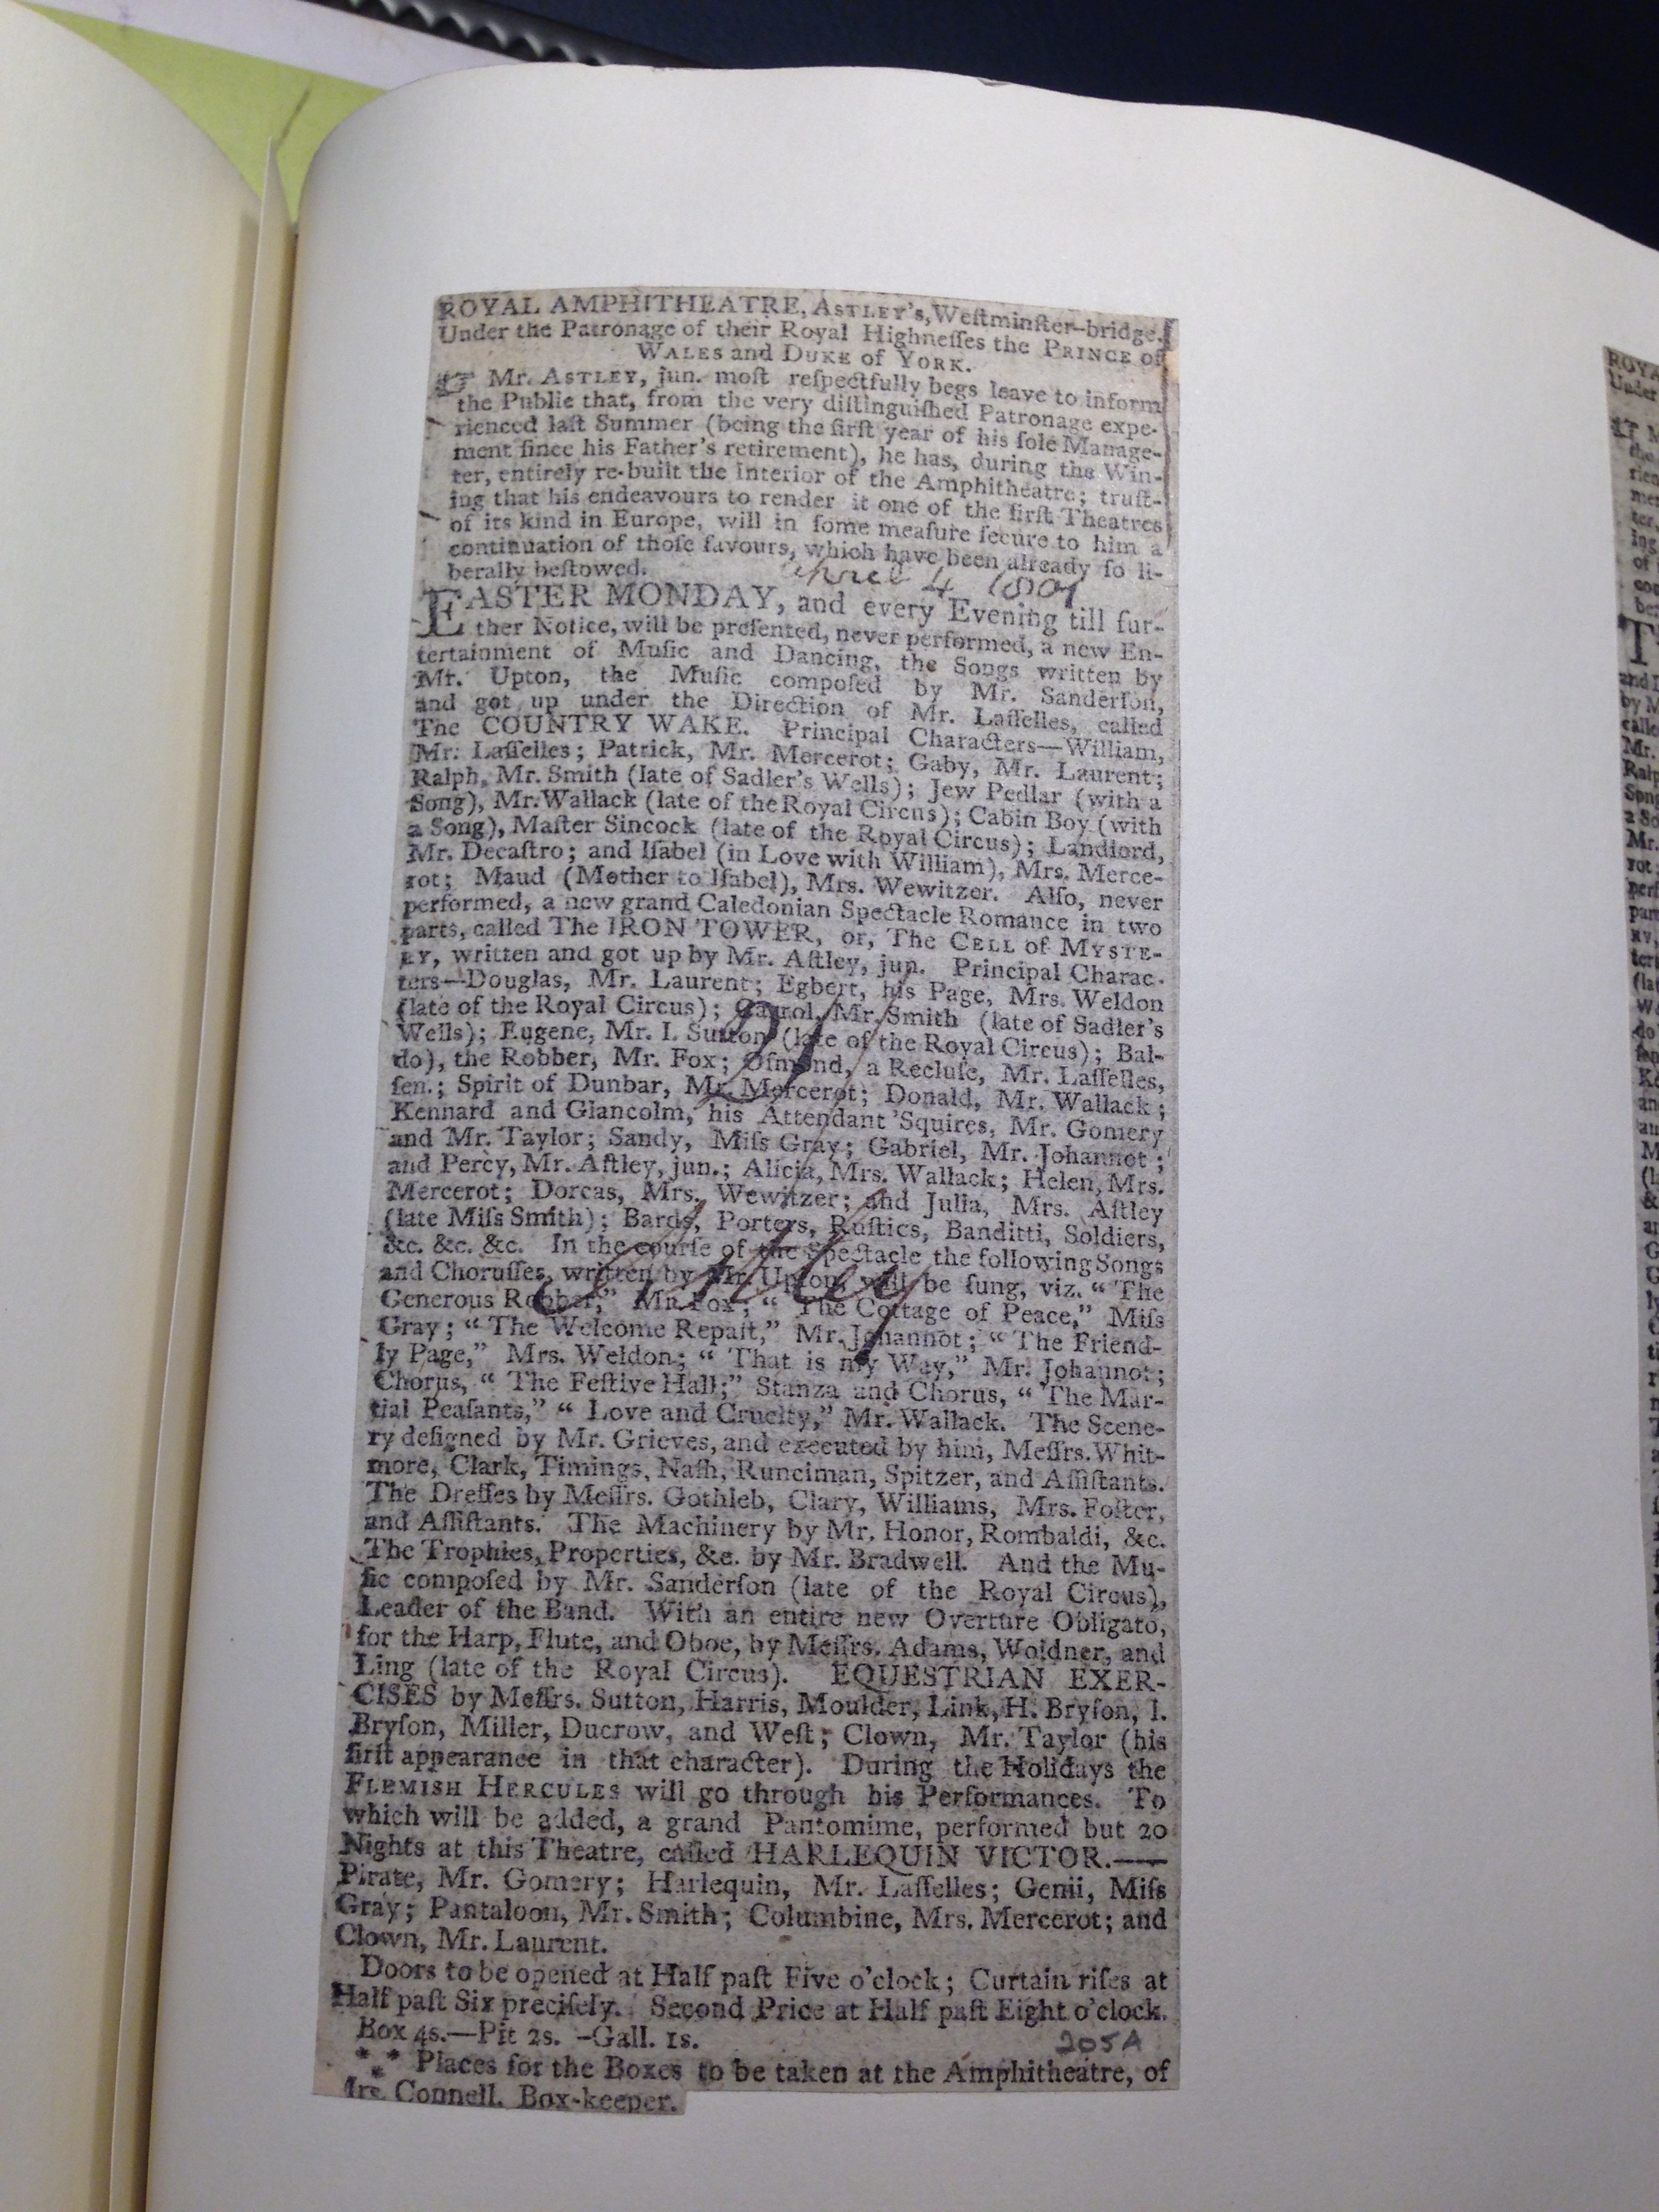 ROYAL AMPHITHEATRE, ASTLEY's, Weſtminſter-bridge.
Under the Patronage of their Royal Highneſſes the PRINCE of
WALES and DUKE of YORK.
☞ Mr. ASTLEY, jun. moſt reſpectfully begs leave to inform
the Public that, from the very diſtinguiſhed Patronage expe-
rienced laſt Summer (being the firſt year of his ſole Manage-
ment ſince his Father's retirement), he has, during the Win-
ter, entirely re-built the interior of the Amphitheatre; truſt-
ing that his endeavours to render it one of the firſt Theatres
of its kind in Europe, will in ſome meaſure ſecure to him a
continuation of thoſe favours, which have been already ſo li-
berally beſtowed.
April 4 1801
EASTER MONDAY, and every Evening till fur-
ther Notice, will be preſented, never performed, a new En-
tertainment of Muſic and Dancing, the Songs written by
Mr. Upton, the Muſic compoſed by Mr. Sanderſon,
and got up under the Direction of Mr. Laſſelles, called
The COUNTRY WAKE. Principal Characters—William,
Mr. Laſſelles; Patrick, Mr. Mercerot; Gaby, Mr. Laurent;
Ralph, Mr. Smith (late of Sadler's Wells); Jew Pedlar (with a
Song), Mr. Wallack (late of the Royal Circus); Cabin Boy (with
a Song), Maſter Sincock (late of the Royal Circus); Landlord,
Mr. Decaſtro; and Iſabel (in Love with William), Mrs. Merce-
rot; Maud (Mother to Iſabel), Mrs. Wewitzer. Alſo, never
performed, a new grand Caledonian Spectacle Romance in two
parts, called The IRON TOWER, or, The CELL of MYSTE-
RY, written and got up by Mr. Aſtley, jun. Principal Charac-
ters—Douglas, Mr. Laurent; Egbert, his Page, Mrs. Weldon
(late of the Royal Circus); Carrol, Mr. Smith (late of Sadler's
Wells); Eugene, Mr. I. Sutton (late of the Royal Circus); Bal-
do), the Robber, Mr. Fox; Oſmond, a Recluſe, Mr. Laſſelles,
ſen.; Spirit of Dunbar, Mr. Mercerot; Donald, Mr. Wallack;
Kennard and Glancolm, his Attendant 'Squires, Mr. Gomery
and Mr. Taylor; Sandy, Miſs Gray; Gabriel, Mr. Johannot;
and Percy, Mr. Aſtley, jun.; Alicia, Mrs. Wallack; Helen, Mrs.
Mercerot; Dorcas, Mrs. Wewitzer; and Julia, Mrs. Aſtley
(late Miſs Smith); Bards, Porters, Ruſtics, Banditti, Soldiers,
&c. &c. &c. In the courſe of the Spectacle the following Songs
and Choruſſes, written by Mr. Upton, will be ſung, viz. "The
Generous Robber," Mr. Fox; "The Cottage of Peace," Miſs
Gray; "The Welcome Repaſt," Mr. Johannot; "The Friend-
ly Page," Mrs. Weldon; "That is my Way," Mr. Johannot;
Chorus, "The Feſtive Hall;" Stanza and Chorus, "The Mar-
tial Peaſants," "Love and Cruelty," Mr. Wallack. The Scene-
ry deſigned by Mr. Grieves, and executed by him, Meſſrs. Whit-
more, Clark, Timings, Naſh, Runciman, Spitzer, and Aſſiſtants.
The Dreſſes by Meſſrs. Gothleb, Clary, Williams, Mrs. Foſter,
and Aſſiſtants. The Machinery by Mr. Honor, Rombaldi, &c.
The Trophies, Properties, &c. by Mr. Bradwell. And the Mu-
ſic compoſed by Mr. Sanderſon (late of the Royal Circus),
Leader of the Band. With an entire new Overture Obligato,
for the Harp, Flute, and Oboe, by Meſſrs. Adams, Woldner, and
Ling (late of the Royal Circus). EQUESTRIAN EXER-
CISES by Meſſrs. Sutton, Harris, Moulder, Link, H. Bryſon, I.
Bryſon, Miller, Ducrow, and Weſt; Clown, Mr. Taylor (his
firſt appearance in that character). During the Holidays the
FLEMISH HERCULES will go through his Performances. To
which will be added, a grand Pantomime, performed but 20
Nights at this Theatre, called HARLEQUIN VICTOR.——
Pirate, Mr. Gomery; Harlequin, Mr. Laſſelles; Genii, Miſs
Gray; Pantaloon, Mr. Smith; Columbine, Mrs. Mercerot; and
Clown, Mr. Laurent.
Doors to be opened at Half paſt Five o'clock; Curtain riſes at
Half paſt Six preciſely. Second Price at Half paſt Eight o'clock.
Box 4s.—Pit 2s.—Gall. 1s.
205A
*⁎* Places for the Boxes to be taken at the Amphitheatre, of
Mrs. Connell, Box-keeper.